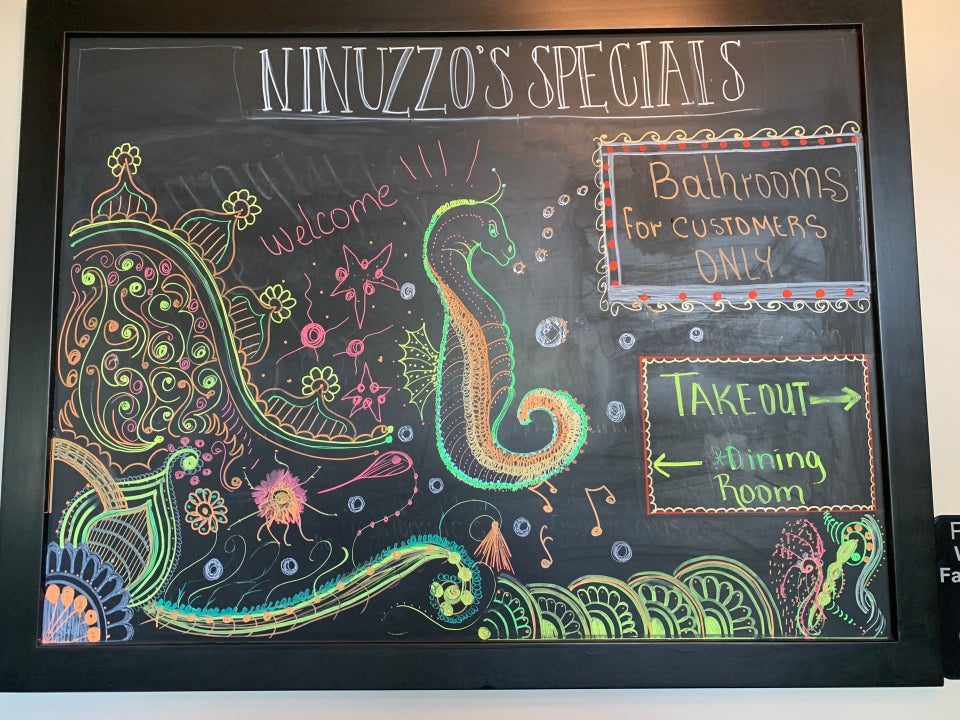 NINUZZO'S SPECIALS
Welcome
Bathrooms
For CUSTOMERS
ONLY
TAKE OUT →
← *Dining
Room
Fa